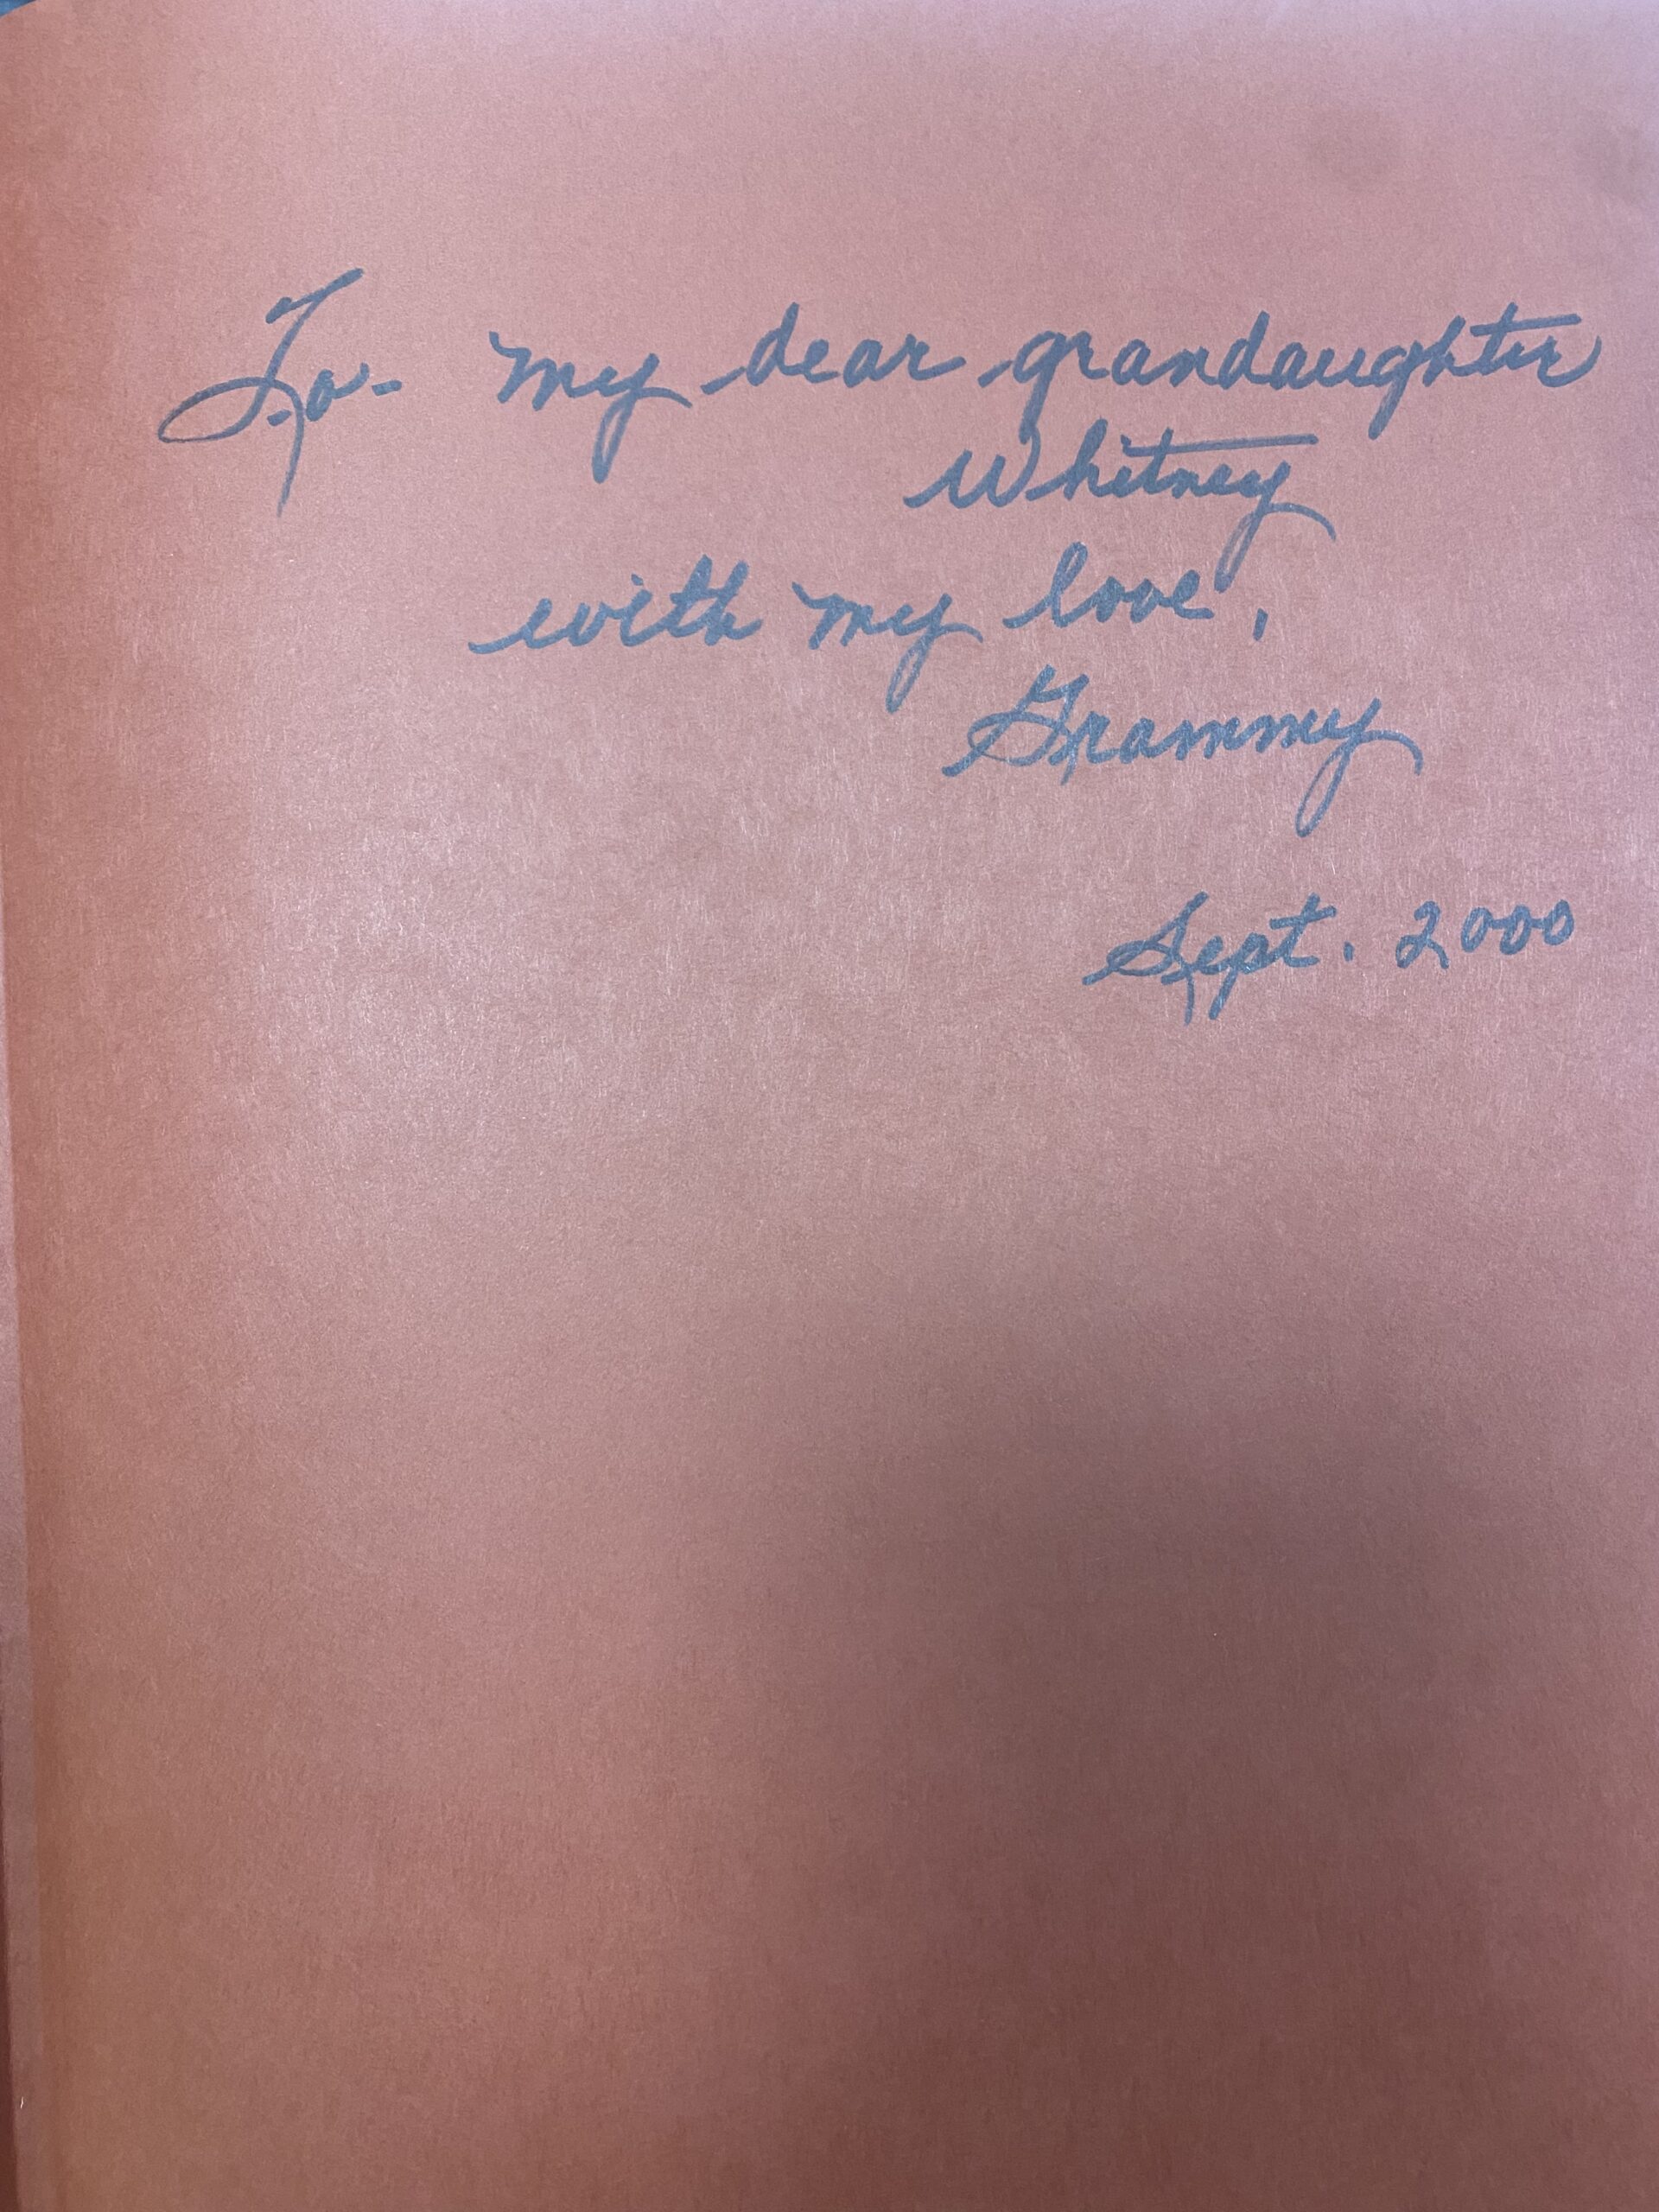 To- my dear grandaughter
Whitney
with my love,
Grammy
Sept. 2000